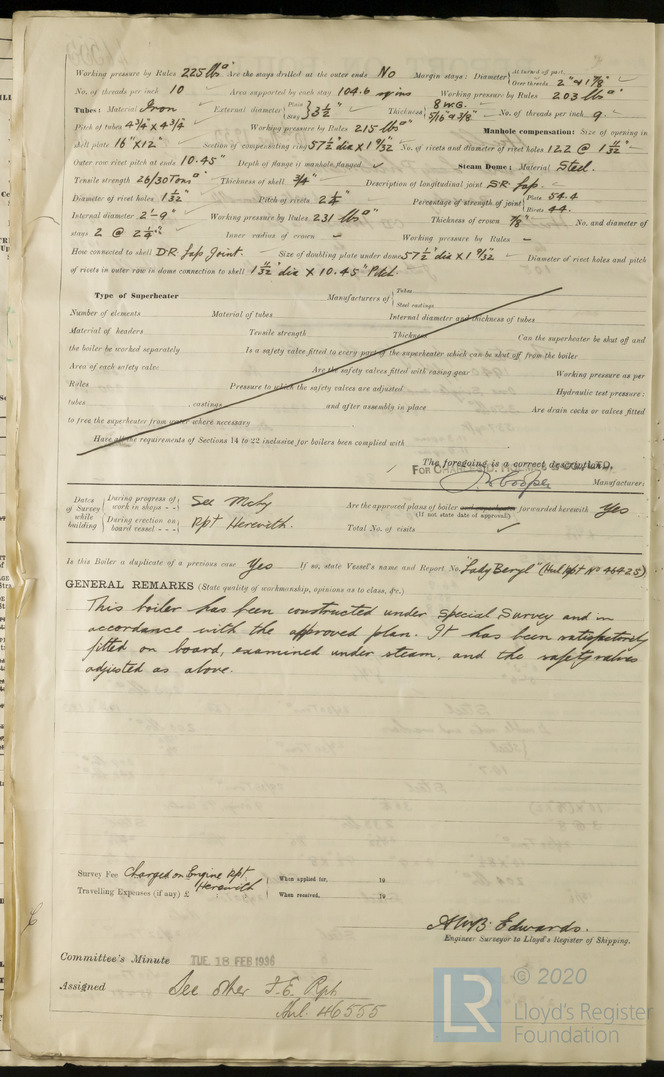 Working pressure by Rules 225 lbs□" Are the stays drilled at the outer ends No Margin stays: Diameter {At turned off part, or Over threads 2" & 1 7/8"
No. of threads per inch 10 Area supported by each stay 104.6 sq ins Working pressure by Rules 203 lbs□"
Tubes: Material Iron External diameter {Plain Stay} 3 1/2" Thickness {8 W.G. 5/16" & 3/8" No. of threads per inch 9
Pitch of tubes 4 3/4" x 4 3/4" Working pressure by Rules 215 lbs□" Manhole compensation: Size of opening in
shell plate 16" x 12" Section of compensating ring 57 1/2" dia x 1 9/32" No. of rivets and diameter of rivet holes 122 @ 1 11/32"
Outer row rivet pitch at ends 10.45" Depth of flange if manhole flanged Steam Dome: Material Steel.
Tensile strength 26/30 Tons□" Thickness of shell 3/4" Description of longitudinal joint S.R. Lap.
Diameter of rivet holes 1 1/32" Pitch of rivets 2 1/4" Percentage of strength of joint {Plate 54.4 Rivets 44.
Internal diameter 2'-9" Working pressure by Rules 231 lbs□" Thickness of crown 7/8" No. and diameter of
stays 2 @ 2 1/4" Inner radius of crown – Working pressure by Rules –
How connected to shell D.R. Lap Joint. Size of doubling plate under dome 57 1/2" dia x 1 9/32" Diameter of rivet holes and pitch
of rivets in outer row in dome connection to shell 1 11/32" dia x 10.45" Pitch.
Type of Superheater Manufacturers of {Tubes Steel castings
Number of elements Material of tubes Internal diameter and thickness of tubes
Material of headers Tensile strength Thickness Can the superheater be shut off and
the boiler be worked separately Is a safety valve fitted to every part of the superheater which can be shut off from the boiler
Area of each safety valve Are the safety valves fitted with easing gear Working pressure as per
Rules Pressure to which the safety valves are adjusted Hydraulic test pressure:
tubes , castings and after assembly in place Are drain cocks or valves fitted
to free the superheater from water where necessary
Have all the requirements of Sections 14 to 22 inclusive for boilers been complied with
The foregoing is a correct description,
FOR CHARLES D. HOLMES & CO. LTD.
Cooper Manufacturer.
Dates of Survey while building {During progress of work in shops - - See Mchy Are the approved plans of boiler and superheater forwarded herewith Yes
(If not state date of approval)
{During erection on board vessel - - - Rpt Herewith. Total No. of visits
Is this Boiler a duplicate of a previous case Yes If so, state Vessel's name and Report No. "Lady Beryl" (Hul Rpt No 46425)
GENERAL REMARKS (State quality of workmanship, opinions as to class, &c.)
This boiler has been constructed under Special Survey and in
accordance with the approved plan. It has been satisfactorily
fitted on board, examined under steam, and the safety valves
adjusted as above.
Survey Fee Charged on Engine Rpt. When applied for, 19
Travelling Expenses (if any) £ Herewith When received, 19
A.W.B. Edwards.
Engineer Surveyor to Lloyd's Register of Shipping.
Committee's Minute TUE 18 FEB 1936
Assigned See other F.E. Rpt.
Hul. 46555
LR
© 2020
Lloyd's Register
Foundation